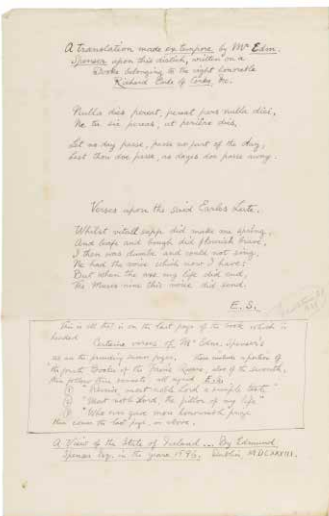 A translation made ex tempore by Mr Edm.
Spenser upon this distich, written on a
Booke belonging to the right honorable
Richard Earle of Corke, &c.
Nulla dies pereat, pereat pars nulla diei,
Ne tu sic pereas, ut periere dies.
Let no day passe, passe no part of the day,
Lest thou doe passe, as dayes doe passe away.
Verses upon the said Earles Lute.
Whilst vitall sapp did make me spring,
And leafe and bough did flourish brave,
I then was dumbe and could not sing,
Ne had the voice which now I have:
But when the axe my life did end,
The Muses nine this voice did send.
E. S.
This is all that is on the last page of the book which is
headed
Certaine verses of Mr Edm. Spenser's
as on the preceding seven pages, these include a portion of
the fourth Booke of the Faerie Queene, also of the seventh,
then follow three sonnets all signed E.S.
1
2 "Meet not Lord, the pillor of my life"
3 "Who ever gave more honourable prize
then comes the last page, as above.
A View of the State of Ireland ... By Edmund
Spenser Esq. in the yeare 1596. Dublin, MDCXXXIII.